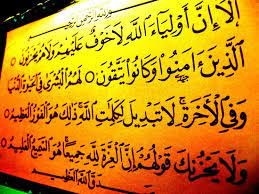 بسم الله الرحمن الرحيم
أَلَا إِنَّ أَوْلِيَاءَ اللَّهِ لَا خَوْفٌ عَلَيْهِمْ وَلَا هُمْ يَحْزَنُونَ
الَّذِينَ ءَامَنُوا وَكَانُوا يَتَّقُونَ ۝ لَهُمُ الْبُشْرَىٰ فِي الْحَيَوٰةِ الدُّنْيَا
وَفِي الْأَخِرَةِ ۚ لَا تَبْدِيلَ لِكَلِمَٰتِ اللَّهِ ذَٰلِكَ هُوَ الْفَوْزُ الْعَظِيمُ ۝
وَلَا يَحْزُنكَ قَوْلُهُمْ إِنَّ الْعِزَّةَ لِلَّهِ جَمِيعًا هُوَ السَّمِيعُ الْعَلِيمُ
صدق الله العظيم